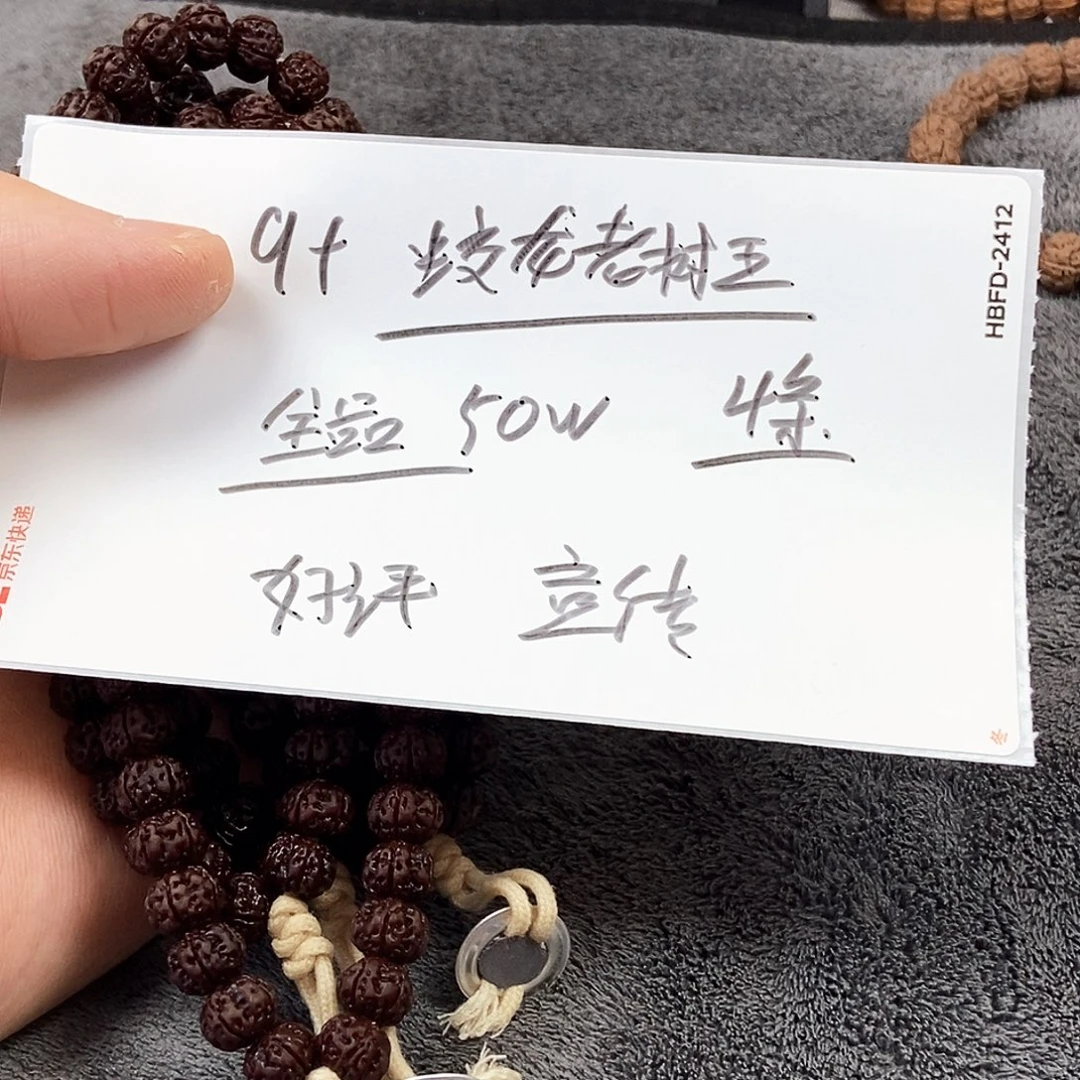 9+ 蛟龙老树王
全品 50W 4条.
好评 宣传
HBFD-2412
京东快递
冬